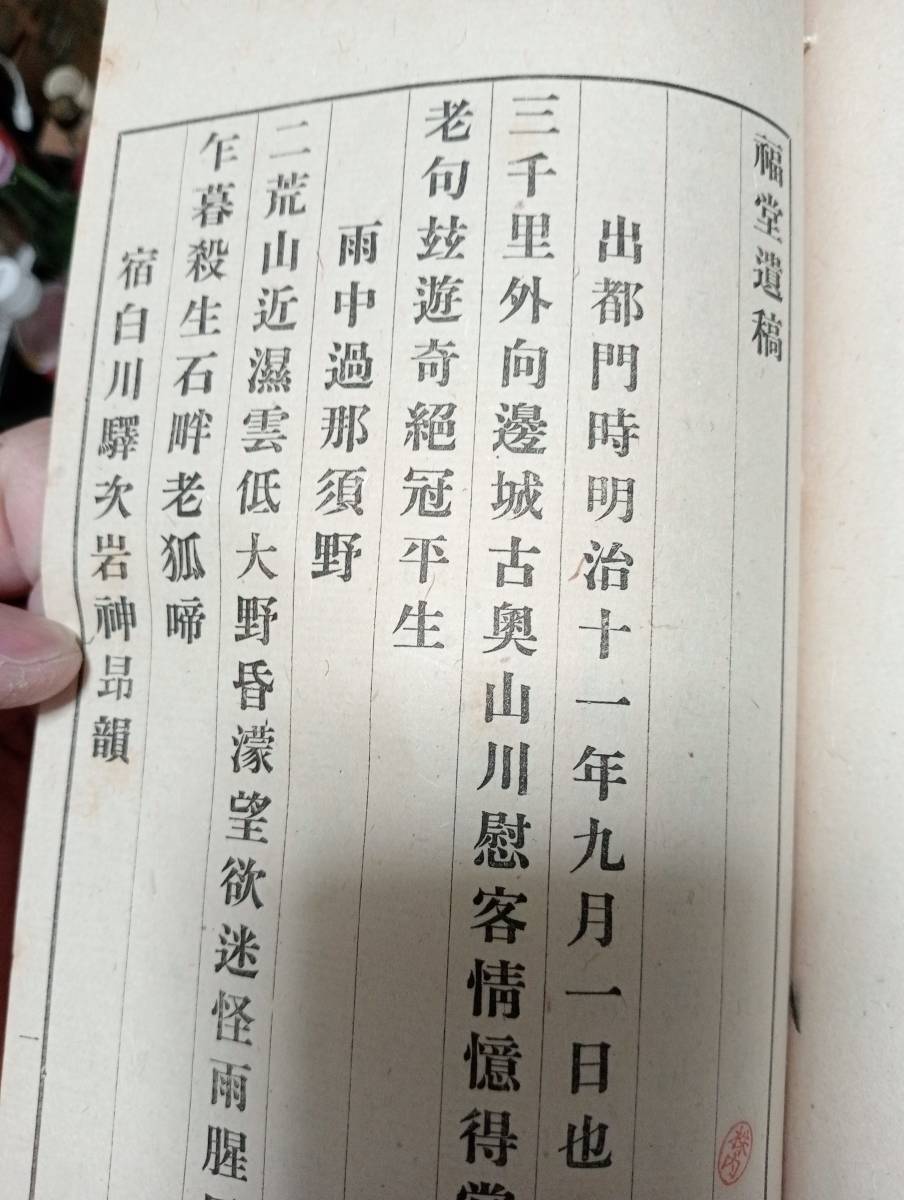 福堂遺稿
出都門時明治十一年九月一日也
三千里外向邊城古奥山川慰客情憶得
老句玆遊奇絕冠平生
雨中過那須野
二荒山近濕雲低大野昏濛望欲迷怪雨腥
乍暮殺生石畔老狐啼
宿白川驛次岩神昂韻